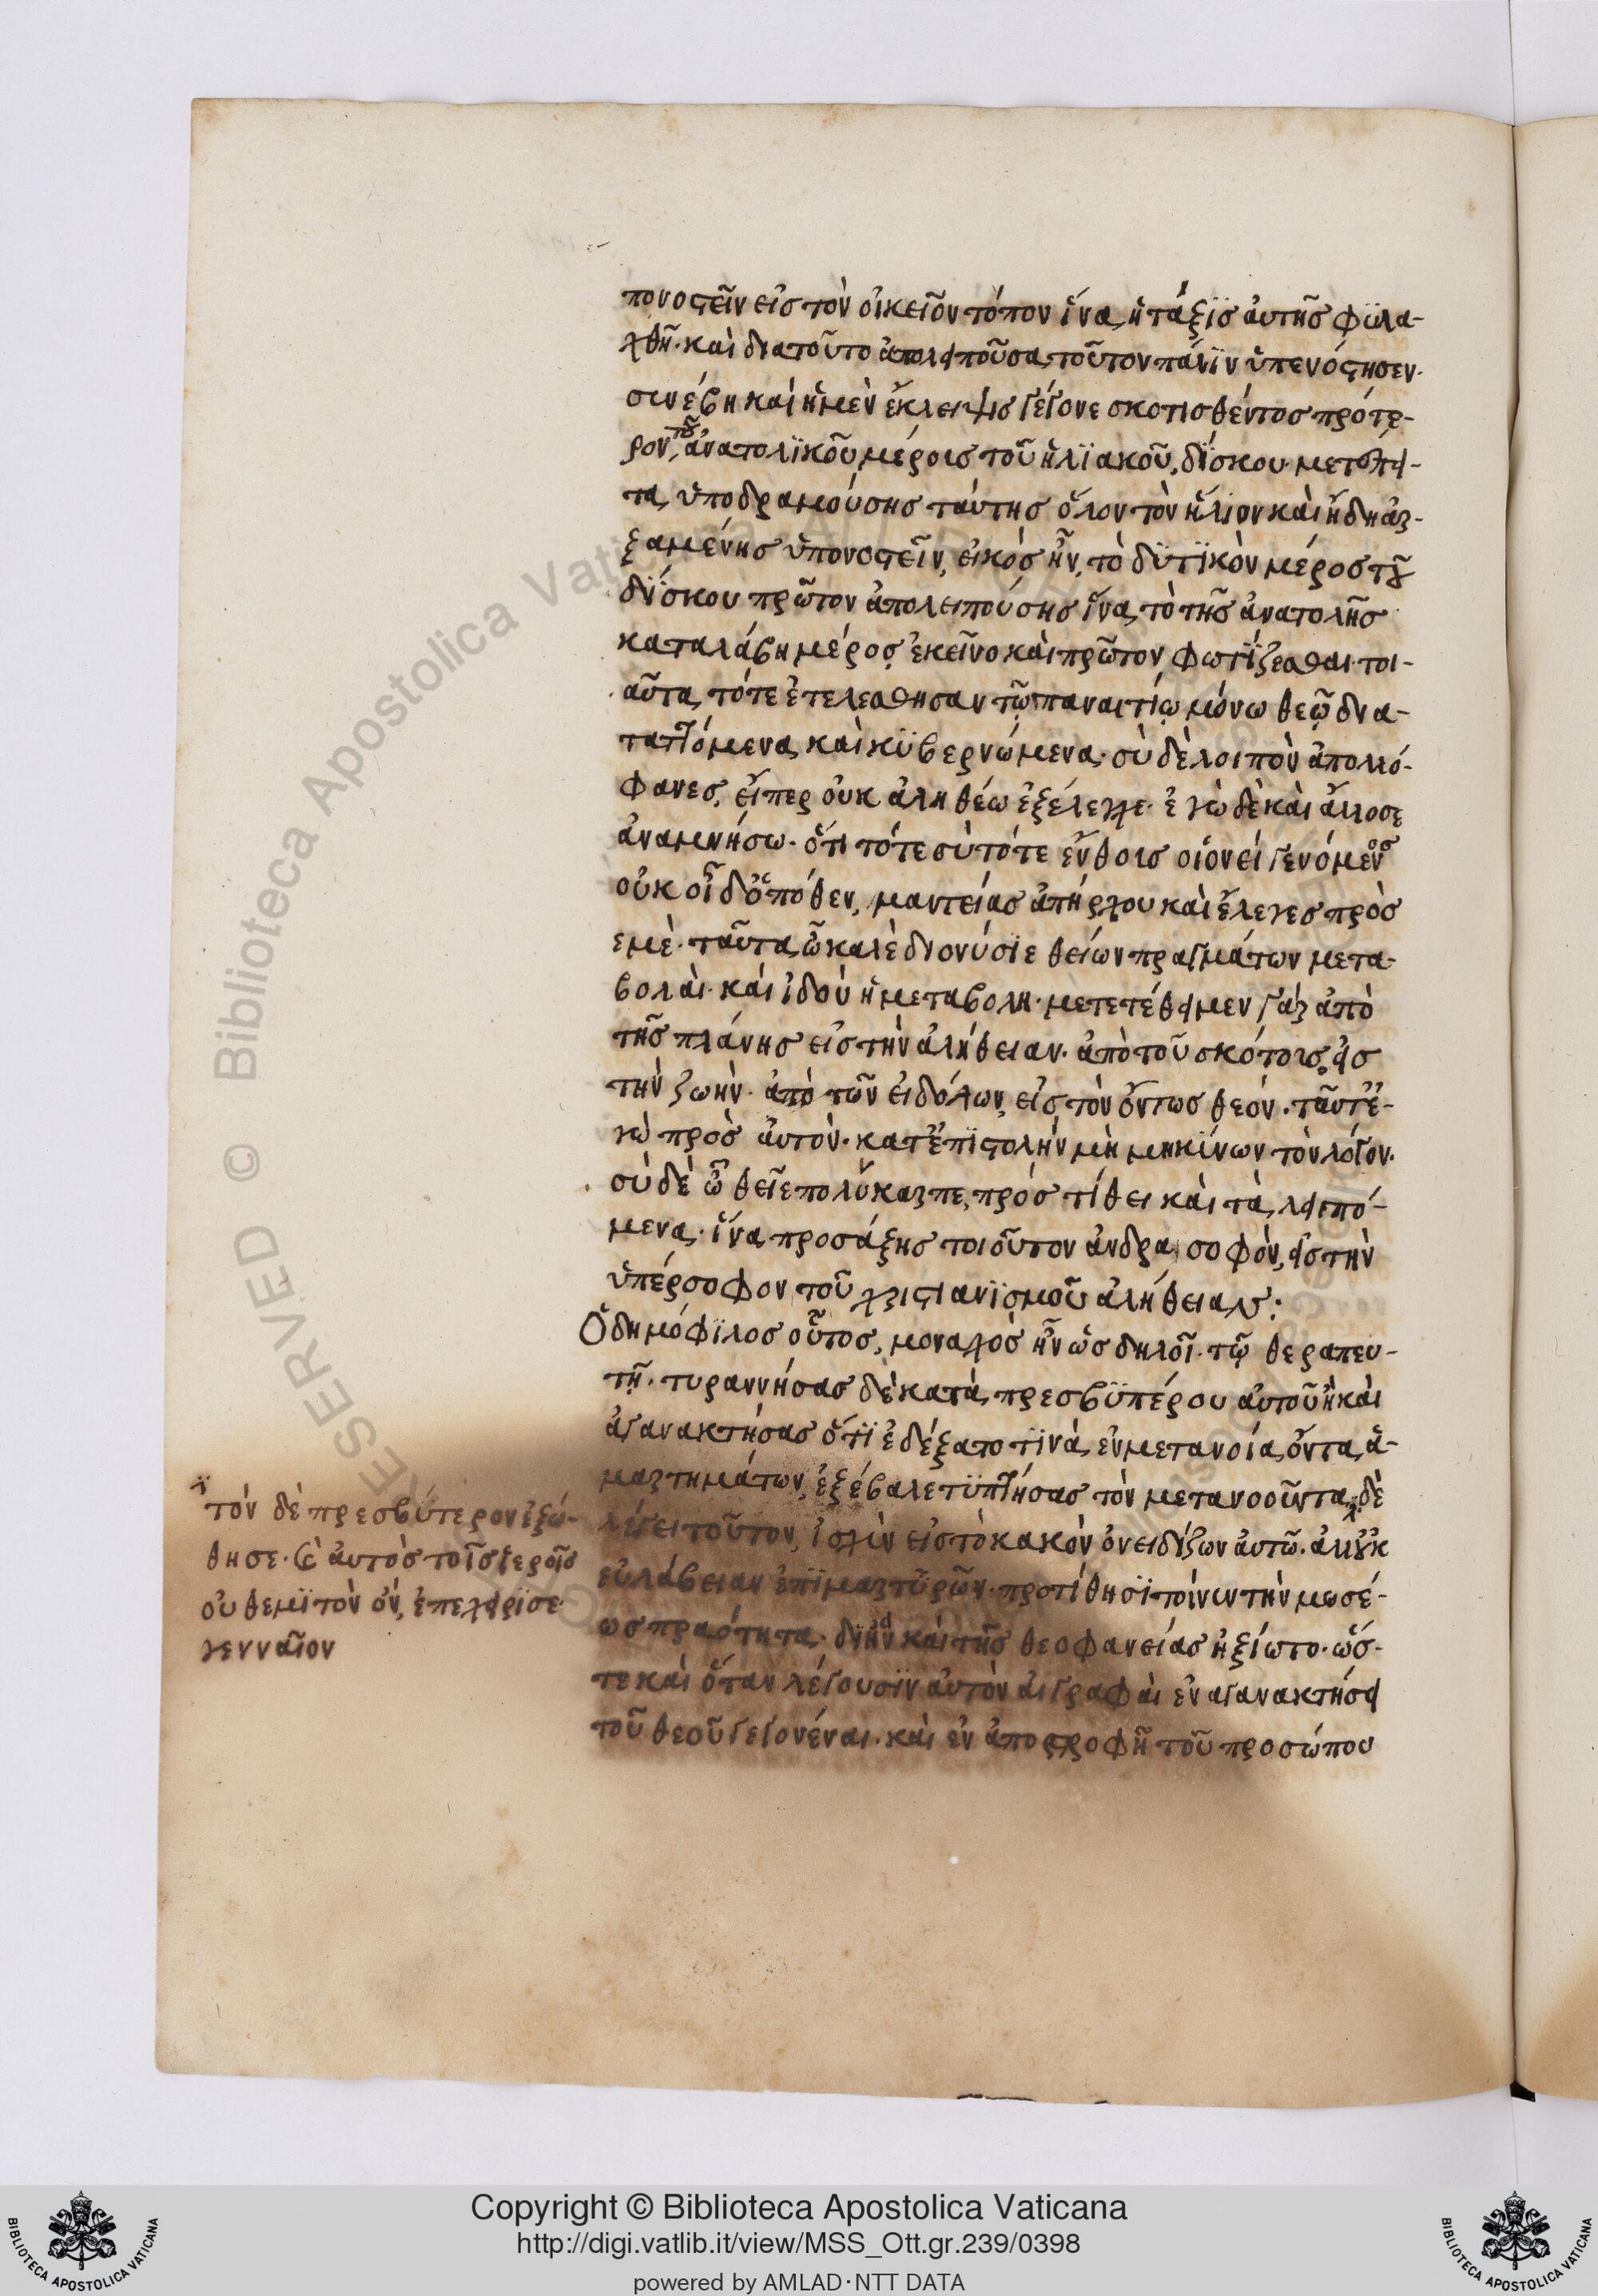 πονοστεῖν εἰς τὸν οἰκεῖον τόπον ἵνα ἡ τάξϊς ἀυτῆς φϋλα-
χθῆ· καὶ διατοῦτο ἀπολιποῦσα τοῦτον πάλϊν ὑπενόστησεν·
συνέβη καὶ ἡ μὲν ἔκλειψις γέγονε σκοτισθέντος πρότε-
ρον τοῦ ἀνατολϊκοῦ μέρους τοῦ ἡλϊακοῦ δΐσκου· μετέπει-
τα ὑποδραμούσης ταύτης ὅλον τὸν ἥλιον καὶ ἤδη ἀρ-
ξαμένης ὑπονοστεῖν, εἰκὸς ἦν, τὸ δϋτϊκὸν μέρος τοῦ
δΐσκου πρῶτον ἀπολειπούσης ἵνα τὸ τῆς ἀνατολῆς
καταλάβη μέρος ἐκεῖνο καὶ πρῶτον φωτΐζεσθαι· τοι-
αῦτα τότε ἐτελέσθησαν τῷ παναιτίῳ μόνω θεῷ δια-
ταττόμενα καὶ κϋβερνώμενα· σὺ δὲ λοιπὸν ἀπολλό-
φανες, εἴπερ οὐκ ἀληθέω ἐξέλεγχε· ἐγὼ δὲ καὶ ἄλλο σε
ἀναμνήσω· ὅτι τότε σὺ τότε ἔνθους οἱονεὶ γενόμενος
οὐκ οἶδ' ὁπόθεν, μαντείας ἀπήρχου καὶ ἔλεγες πρὸς
εμὲ· ταῦτα ὦ καλὲ διονύσϊε θείων πραγμάτων μετα-
βολὰι· κάι ἰδοὺ ἡ μεταβολη· μετετέθειμεν γὰρ ἀπὸ
τῆς πλάνης εἰς τὴν ἀλήθειαν· ἀπὸ τοῦ σκότους, εἰς
τὴν ζωὴν· ἀπὸ τῶν ἐιδόλων, εἰς τὸν ὄντως θεόν· ταῦτ' ἐ-
γὼ πρὸς ἀυτὸν· κατ' ἐπϊστολὴν μὴ μηκΐνων τὸν λόγον·
σὺ δὲ ὦ θεῖε πολύκαρπε, πρόστίθει καὶ τὰ λειπό-
μενα· ἵνα προσάξης τοιοῦτον ἄνδρα σοφὸν, εἰς τὴν
ὑπέρσοφον τοῦ χριστιανϊσμοῦ ἀλήθειαν:
Ὁ δημόφϊλος οὗτος, μοναχὸς ἦν ὡς δηλοῖ· τῷ θεραπευ-
τῆ· τυραννήσας δὲ κατὰ πρεσβϋπέρου ἀυτοῦ ἢ καὶ
ἀγανακτήσας ὅτϊ ἐδέξατο τϊνὰ ἐν μετανοία ὄντα ἁ-
μαρτημάτων, ἐξέβαλε τϋπτήσας τὸν μετανοοῦντα· δὲ
λέγει τοῦτον, ἰσχὺν εἰς τὸ κακὸν ὀνειδίζων ἀυτῶ· ἀλλ' οὐκ
εὐλάβειαν ἐπϊμαρτϋρῶν· προτίθησϊ τοίνυν τὴν μωσέ-
ως πραότητα· δι' ἣν καὶ τῆς θεοφανείας ἠξίωτο· ὥσ-
τε καὶ ὅταν λέγουσϊν ἀυτὸν ἁι γραφὰι ἐν αγανακτήσει
τοῦ θεοῦ γεγονέναι· καὶ ἐν ἀποστροφῆ τοῦ προσώπου
τὸν δὲ πρεσβύτερον ἐξώ-
θησε· καὶ ἀυτὸς τοῖς ἱεροῖς
οὐ θεμϊτὸν ὂν, ἐπεχείρϊσε
γενναῖον
Copyright © Biblioteca Apostolica Vaticana
http://digi.vatlib.it/view/MSS_Ott.gr.239/0398
powered by AMLAD·NTT DATA
BIBLIOTECA APOSTOLICA VATICANA
BIBLIOTECA APOSTOLICA VATICANA